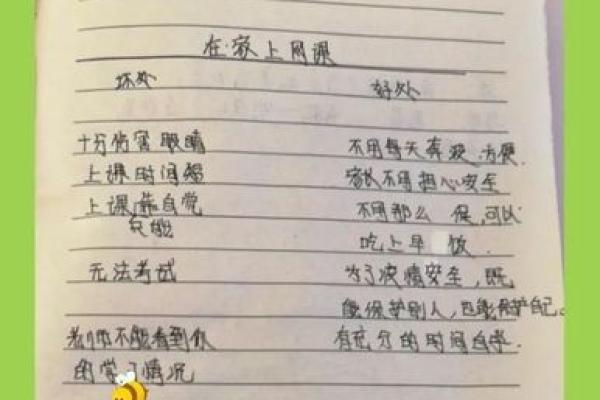 在家上网课
坏处 好处
十分伤害眼睛 不用每天奔波.方便
上课时间短 家长不用担心安全
上课靠自觉 不用那么 ,可以
吃上早 饭.
无法考试 为了疫情安全,既
能保护别人,也能保护自己。
老师不能看到你 有充分的时间自学.
的学习情况